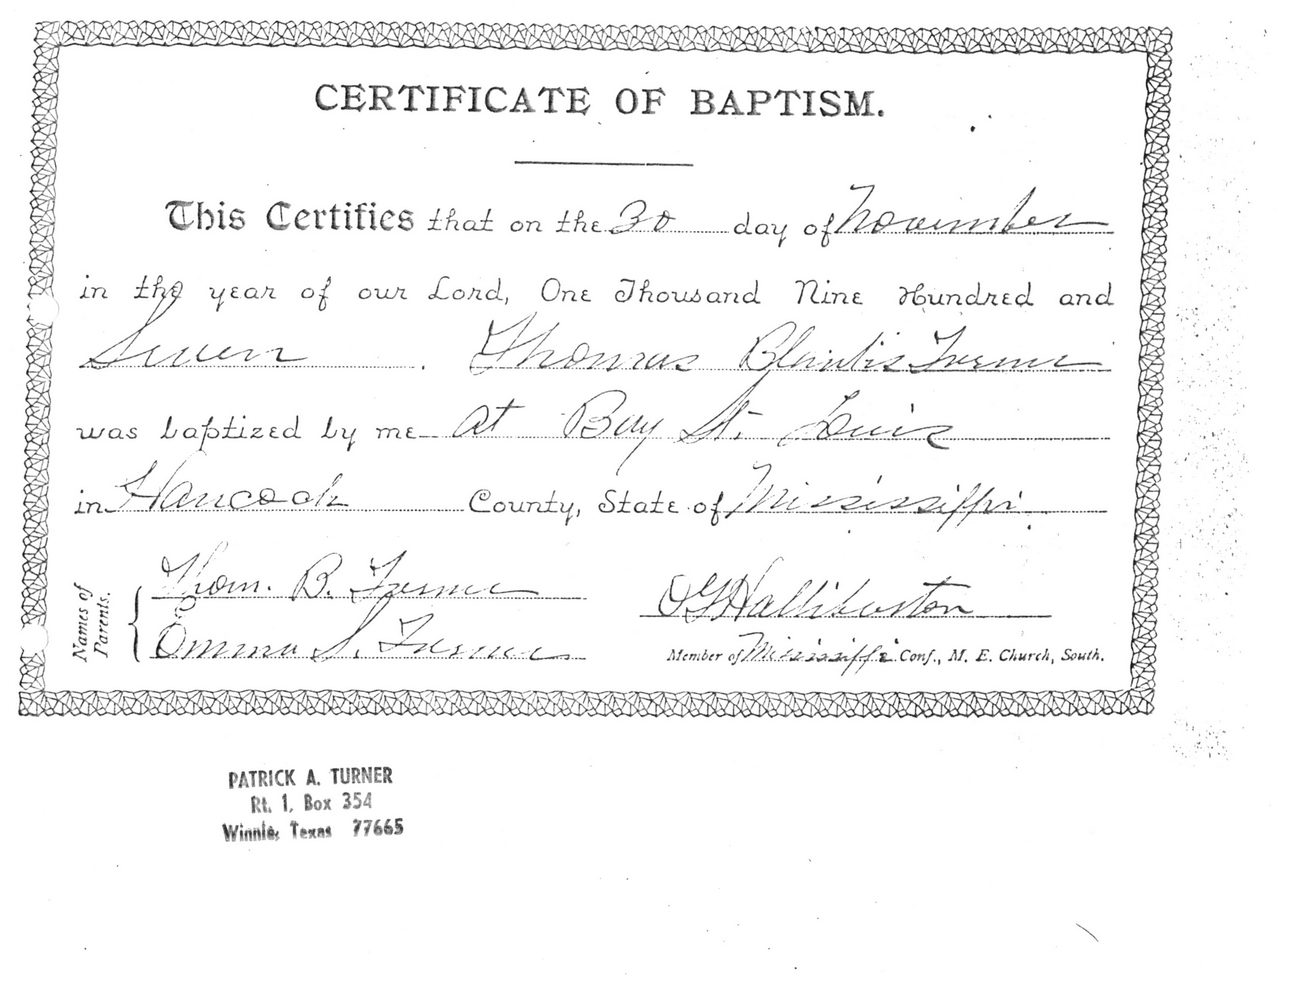 CERTIFICATE OF BAPTISM.
This Certifies that on the 30 day of November
in the year of our Lord, One Thousand Nine Hundred and
Seven . Thomas Turner
was baptized by me at Bay St. Louis
in Hancock County, State of Mississippi
Names of Parents.
Thom. B. Turner
Emma S. Turner
Halliburton
Member of Mississippi Conf., M. E. Church, South.
PATRICK A. TURNER
Rt. 1, Box 354
Winnie, Texas 77665